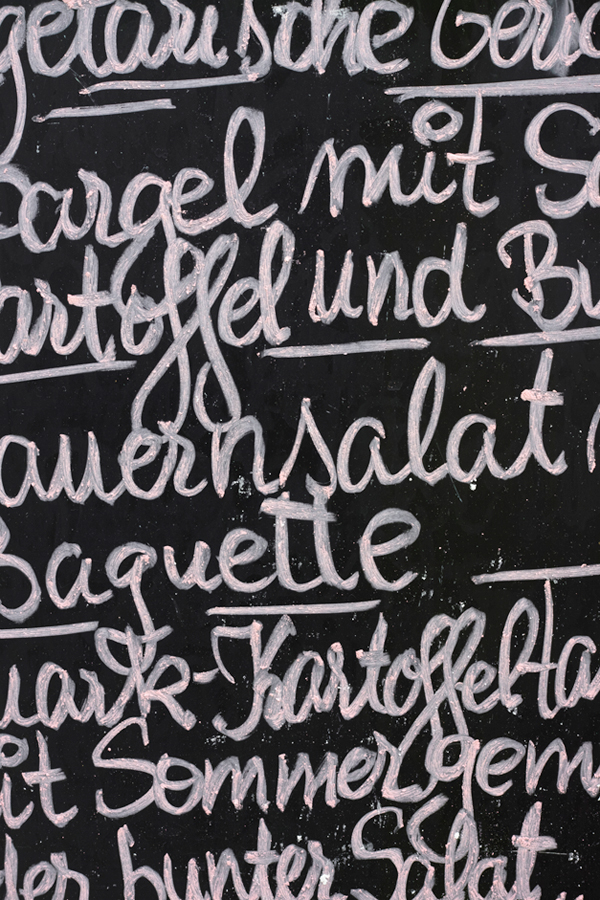 getarische Geric
pargel mit So
artoffel und Bu
auernsalat
Baguette
uark-Kartoffelta
it Sommergem
der bunter Salat